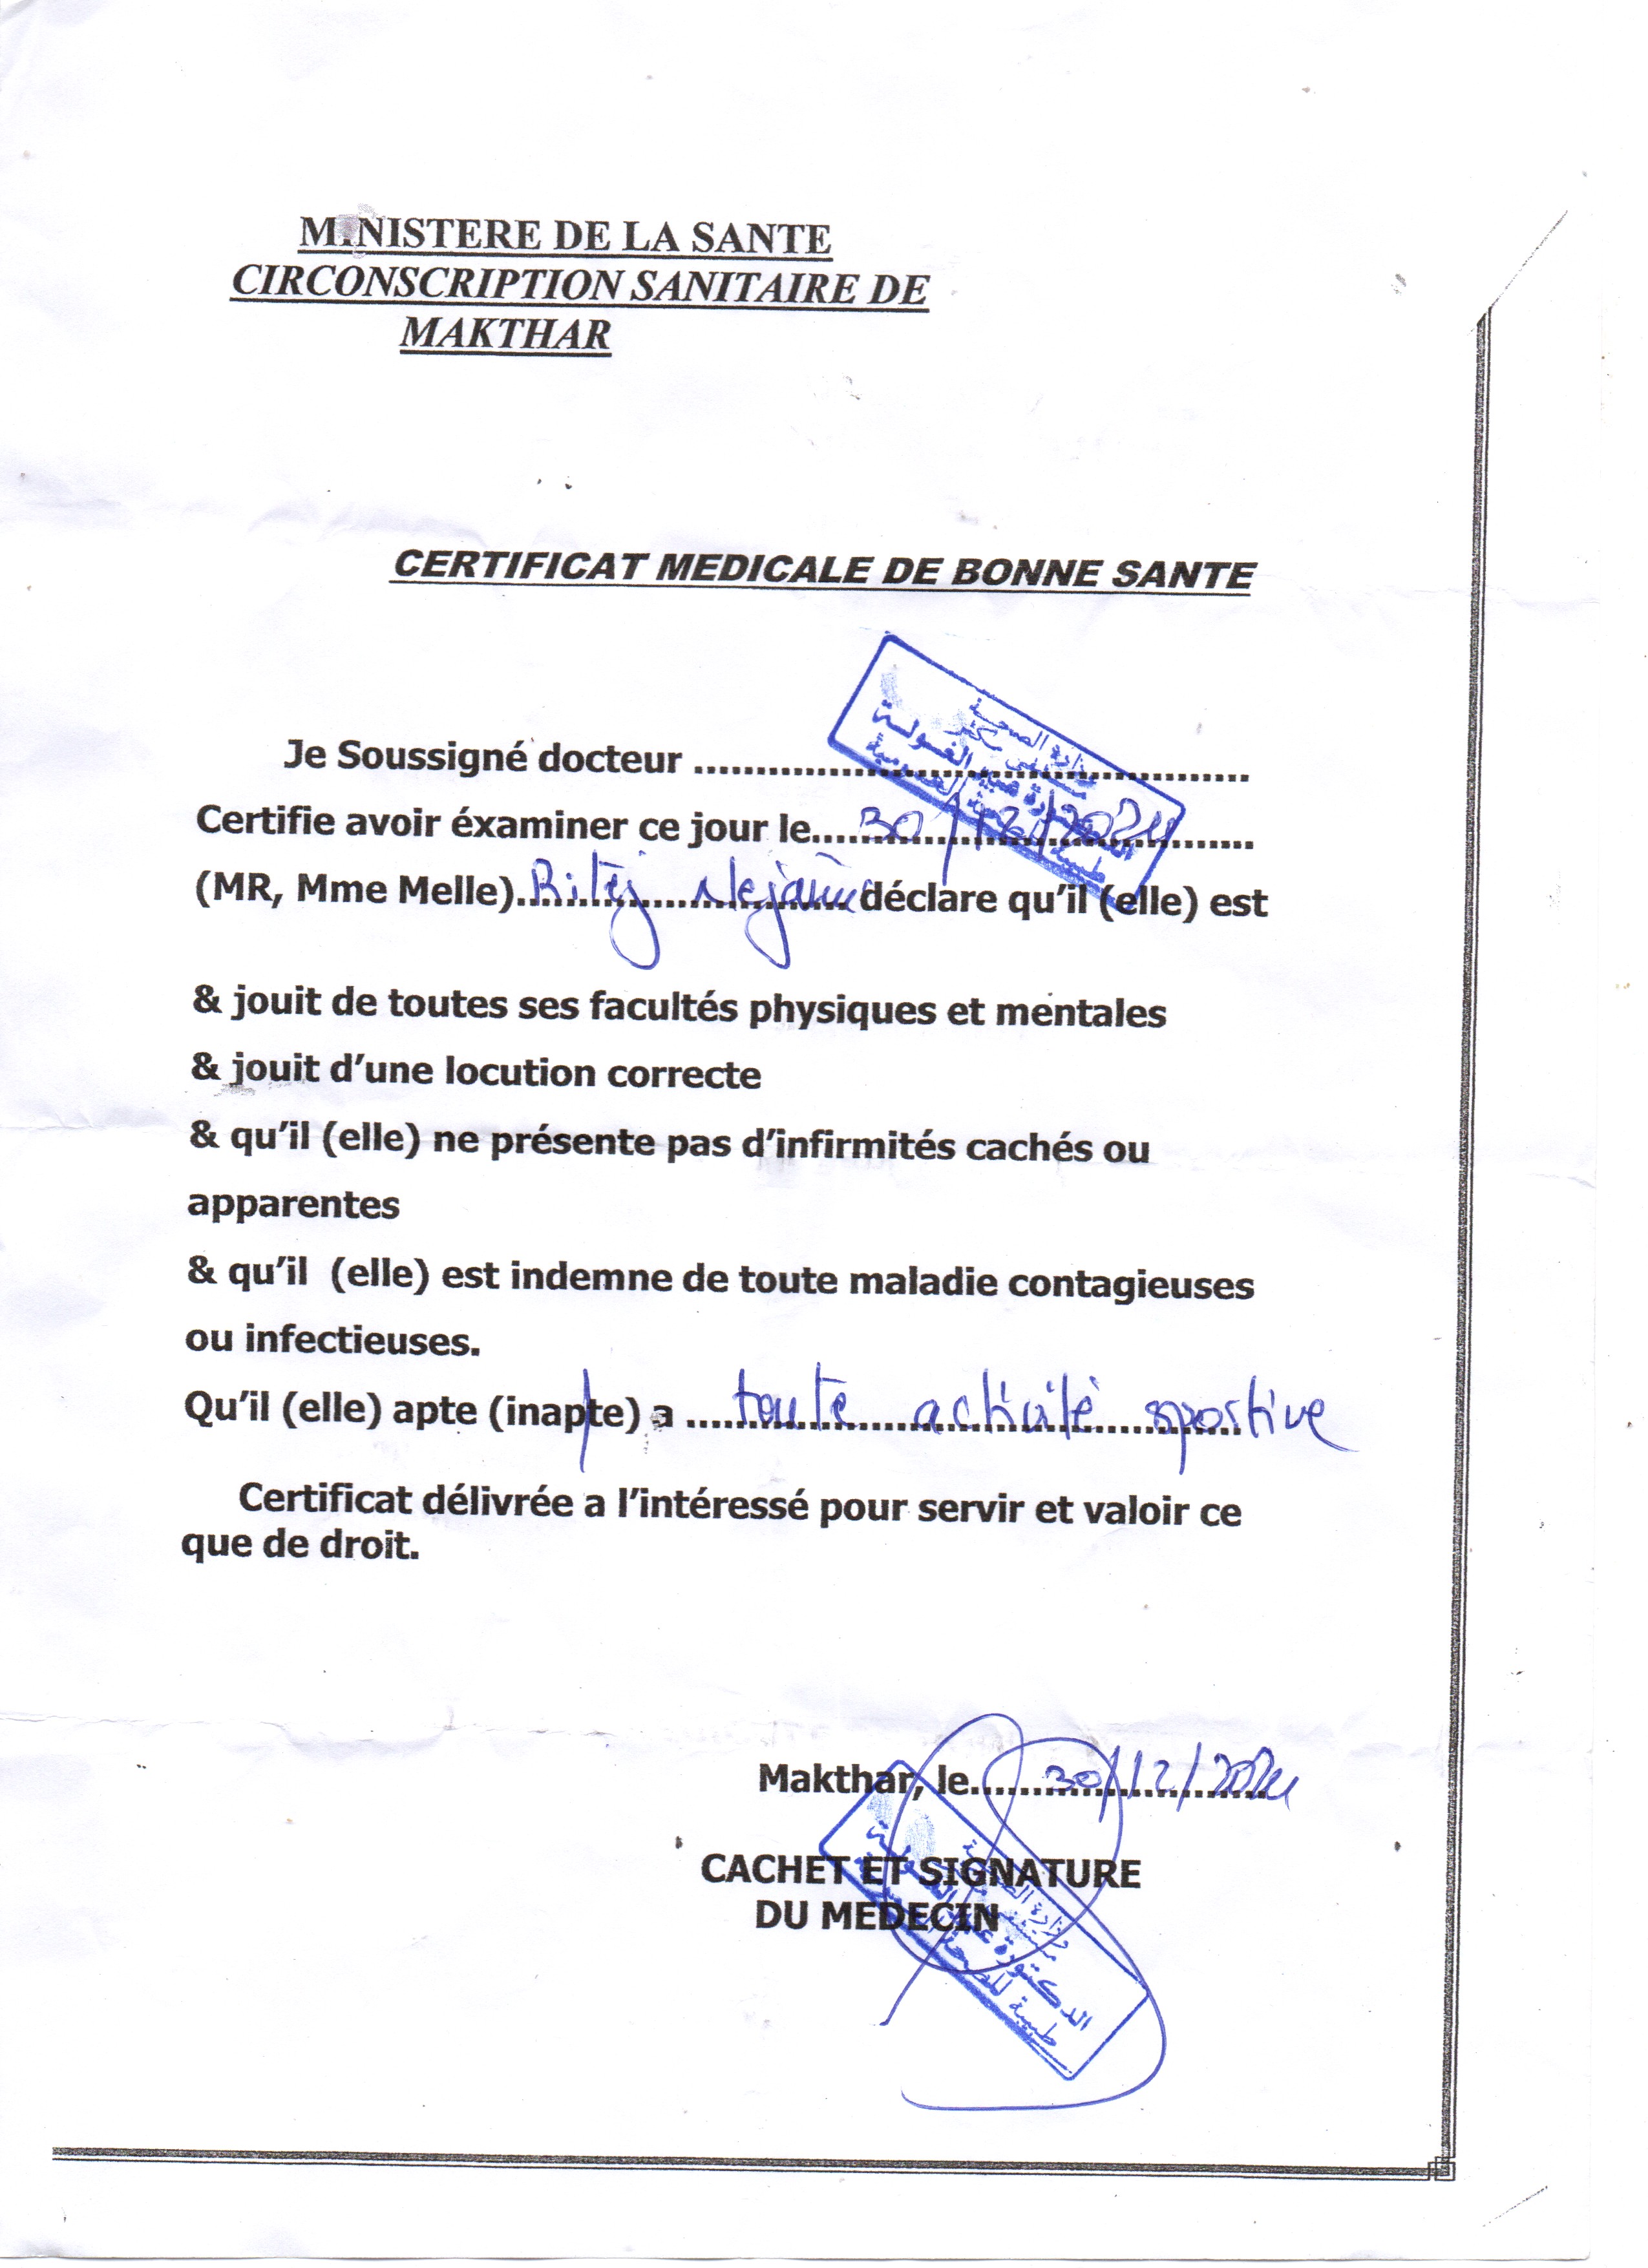 MINISTERE DE LA SANTE
CIRCONSCRIPTION SANITAIRE DE
MAKTHAR
CERTIFICAT MEDICALE DE BONNE SANTE
وزارة الصحة
Je Soussigné docteur ............................................
Certifie avoir éxaminer ce jour le....30/12/2024......
(MR, Mme Melle)............déclare qu'il (elle) est
& jouit de toutes ses facultés physiques et mentales
& jouit d'une locution correcte
& qu'il (elle) ne présente pas d'infirmités cachés ou
apparentes
& qu'il (elle) est indemne de toute maladie contagieuses
ou infectieuses.
Qu'il (elle) apte (inapte) a ....toute activité sportive
Certificat délivrée a l'intéressé pour servir et valoir ce
que de droit.
Makthar, le......30/12/2024
CACHET ET SIGNATURE
DU MEDECIN
وزارة الصحة
الدكتورة